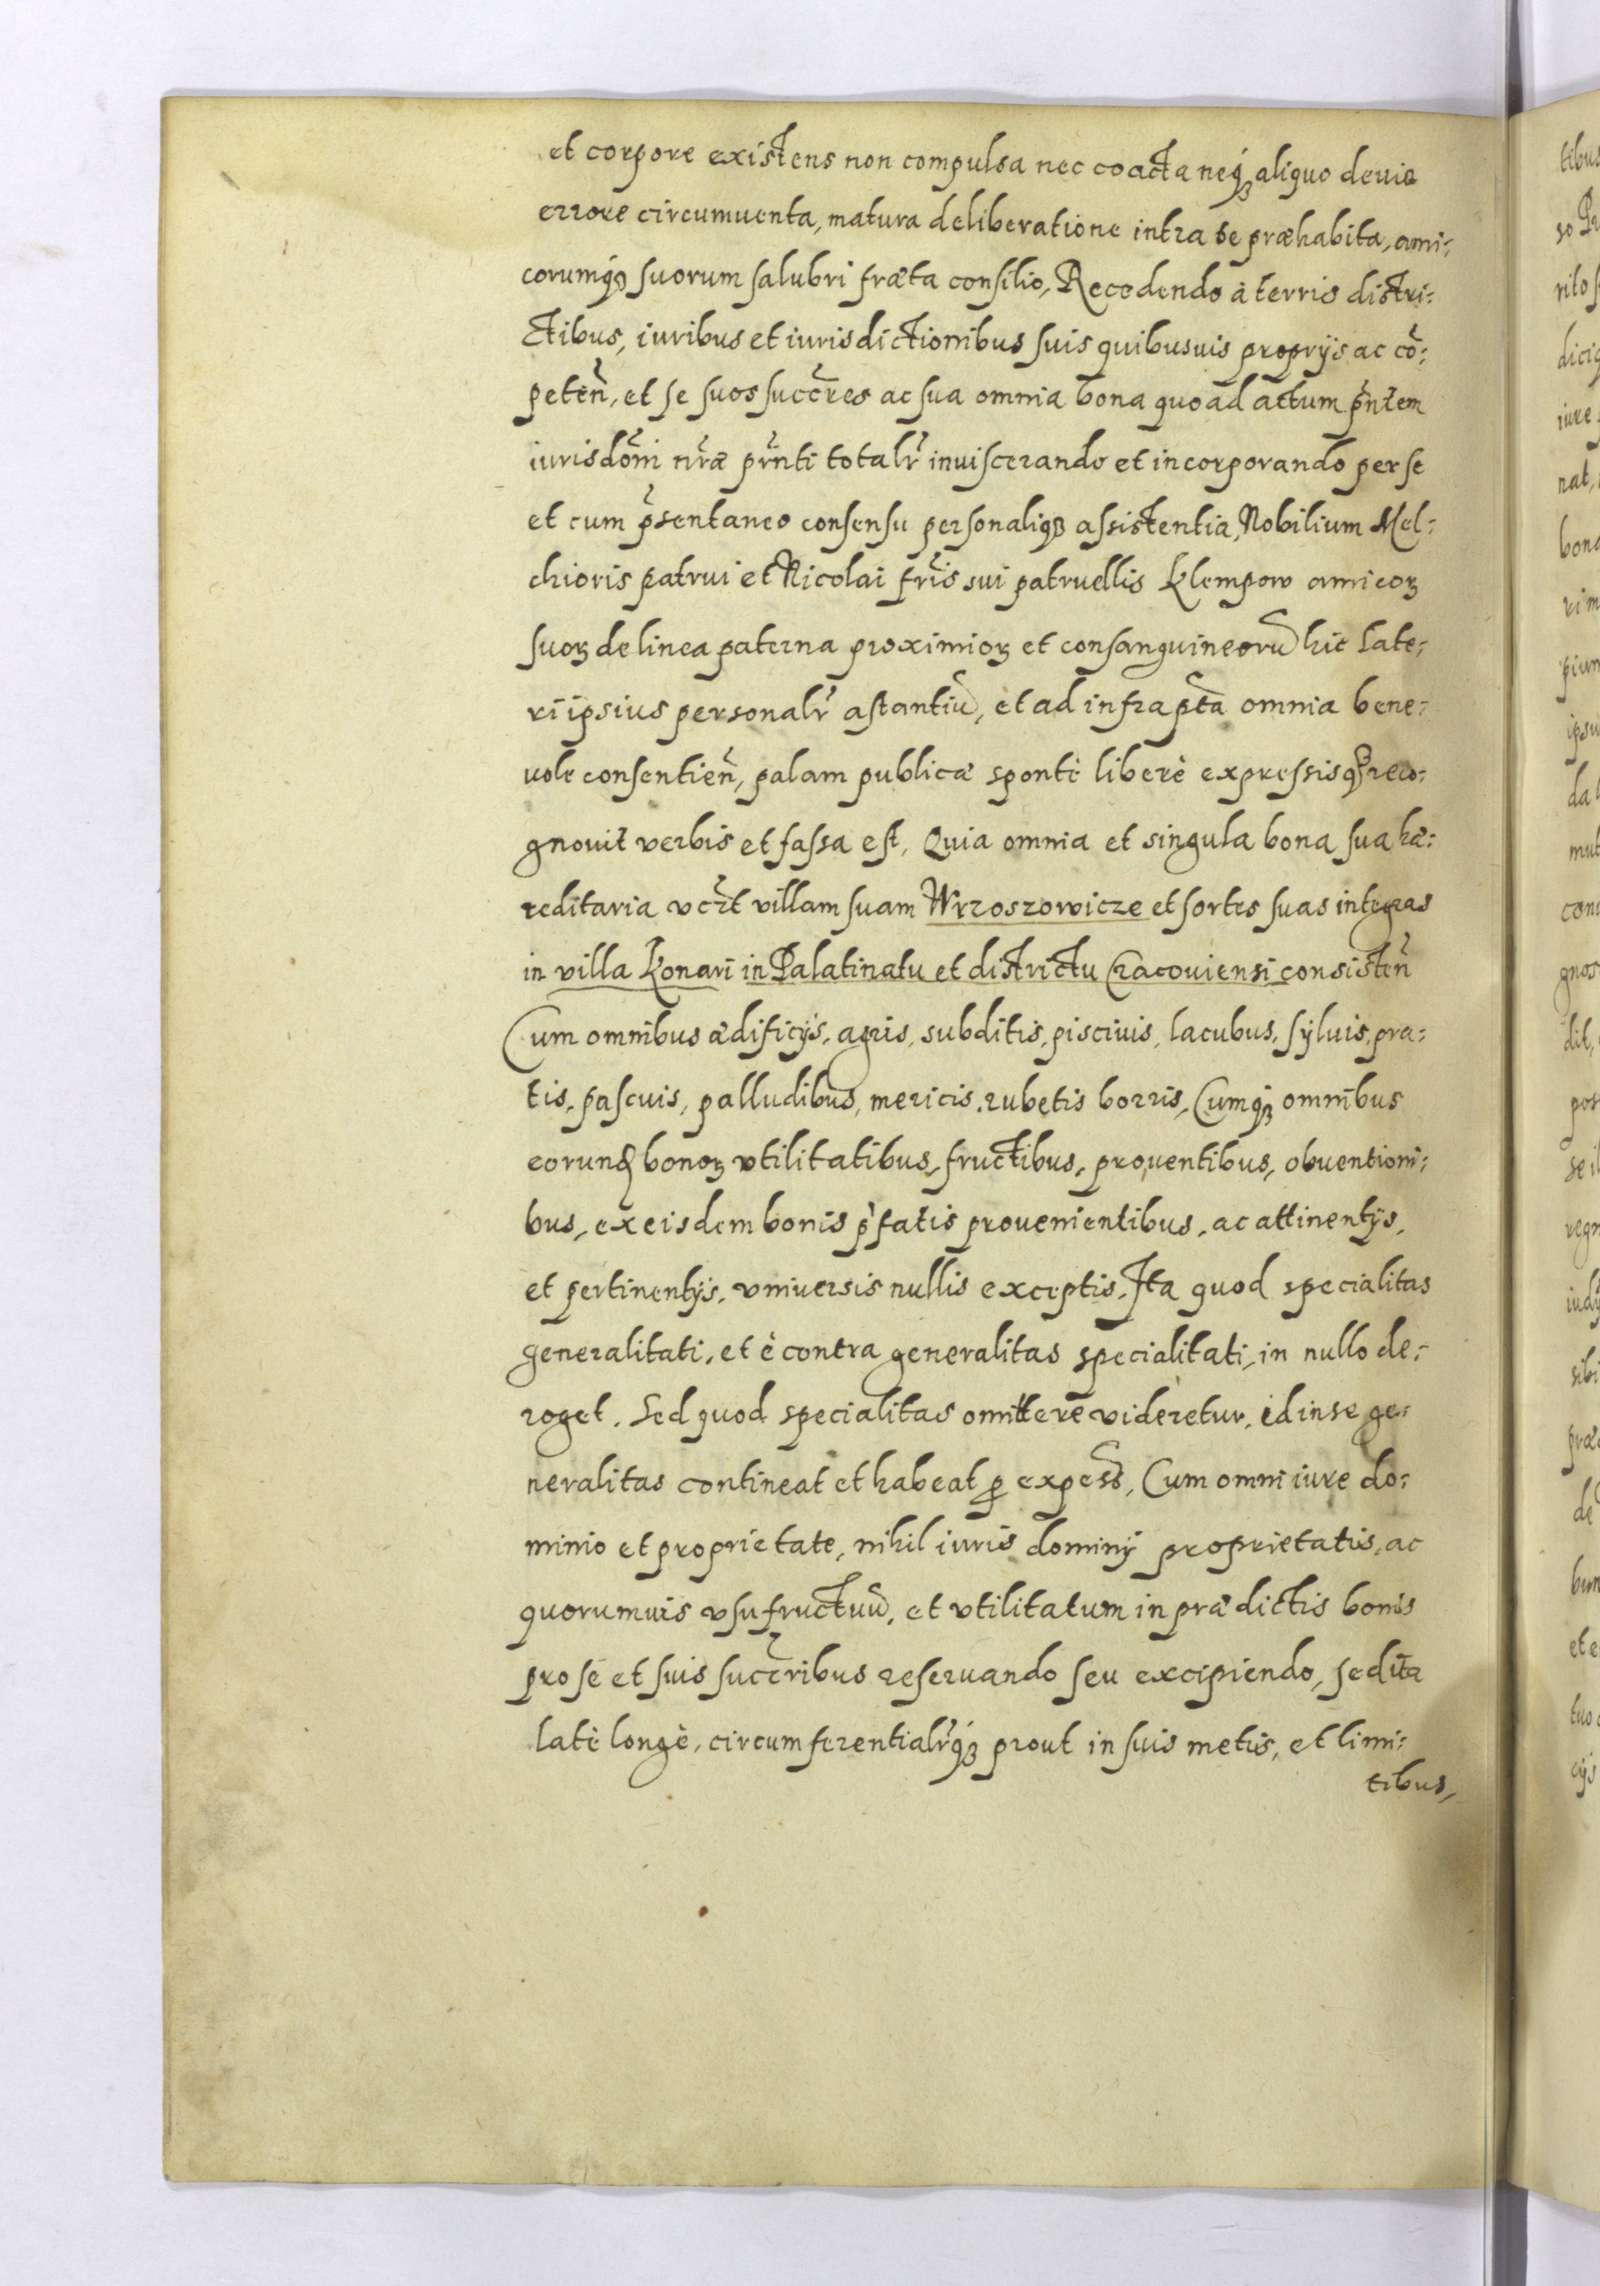 et corpore existens non compulsa nec coacta neqꝫ aliquo deuio
errore circumuenta, matura deliberatione intra se præhabita, ami:
corumqꝫ suorum salubri fræta consilio, Recedendo à terris distri:
ctibus, iuribus et iurisdictionibus suis quibusuis proprijs ac cõ:
peteñ, et se suos succres ac sua omnia bona quoad actum pñtem
iurisdoni nræ pnti totalr inuiscerando et incorporando per se
et cum psentaneo consensu personaliqꝫ assistentia, Nobilium Mel:
chioris patrui et Nicolai fris sui patruellis Klempow amicoꝝ
suoꝝ de linea paterna proximioꝝ et consanguineorũ hic late:
ri ipsius personalr astantiũ, et ad infrapta omnia bene:
uole consentieñ, palam publicæ spontè liberè expressisqꝫ reco:
gnouit verbis et fassa est, Quia omnia et singula bona sua hæ:
reditaria vczt villam suam Wrzoszowicze et sortes suas integras
in villa Konari in Palatinatu et districtu Cracouiensi consisteñ
Cum omnibus ædificijs, agris, subditis, pisciuis, lacubus, syluis, pra:
tis, pascuis, palludibus, mericis, rubetis borris, Cumqꝫ omnibus
eorund bonoꝝ vtilitatibus, fructibus, prouentibus, obuentioni:
bus, ex eisdem bonis pfatis prouenientibus, ac attinentijs,
et pertinentijs, vniuersis nullis exceptis, Ita quod specialitas
generalitati, et è contra generalitas specialitati, in nullo de:
roget. Sed quod specialitas omittere videretur, id in se ge:
neralitas contineat et habeat ꝑ expess, Cum omni iure do:
minio et proprietate, nihil iuris dominij proprietatis, ac
quorumuis vsufructuũ, et vtilitatum in prædictis bonis
pro se et suis succribus reseruando seu excipiendo, sed ita
latè longè, circumferentialrqꝫ prout in suis metis, et limi:
tibus,